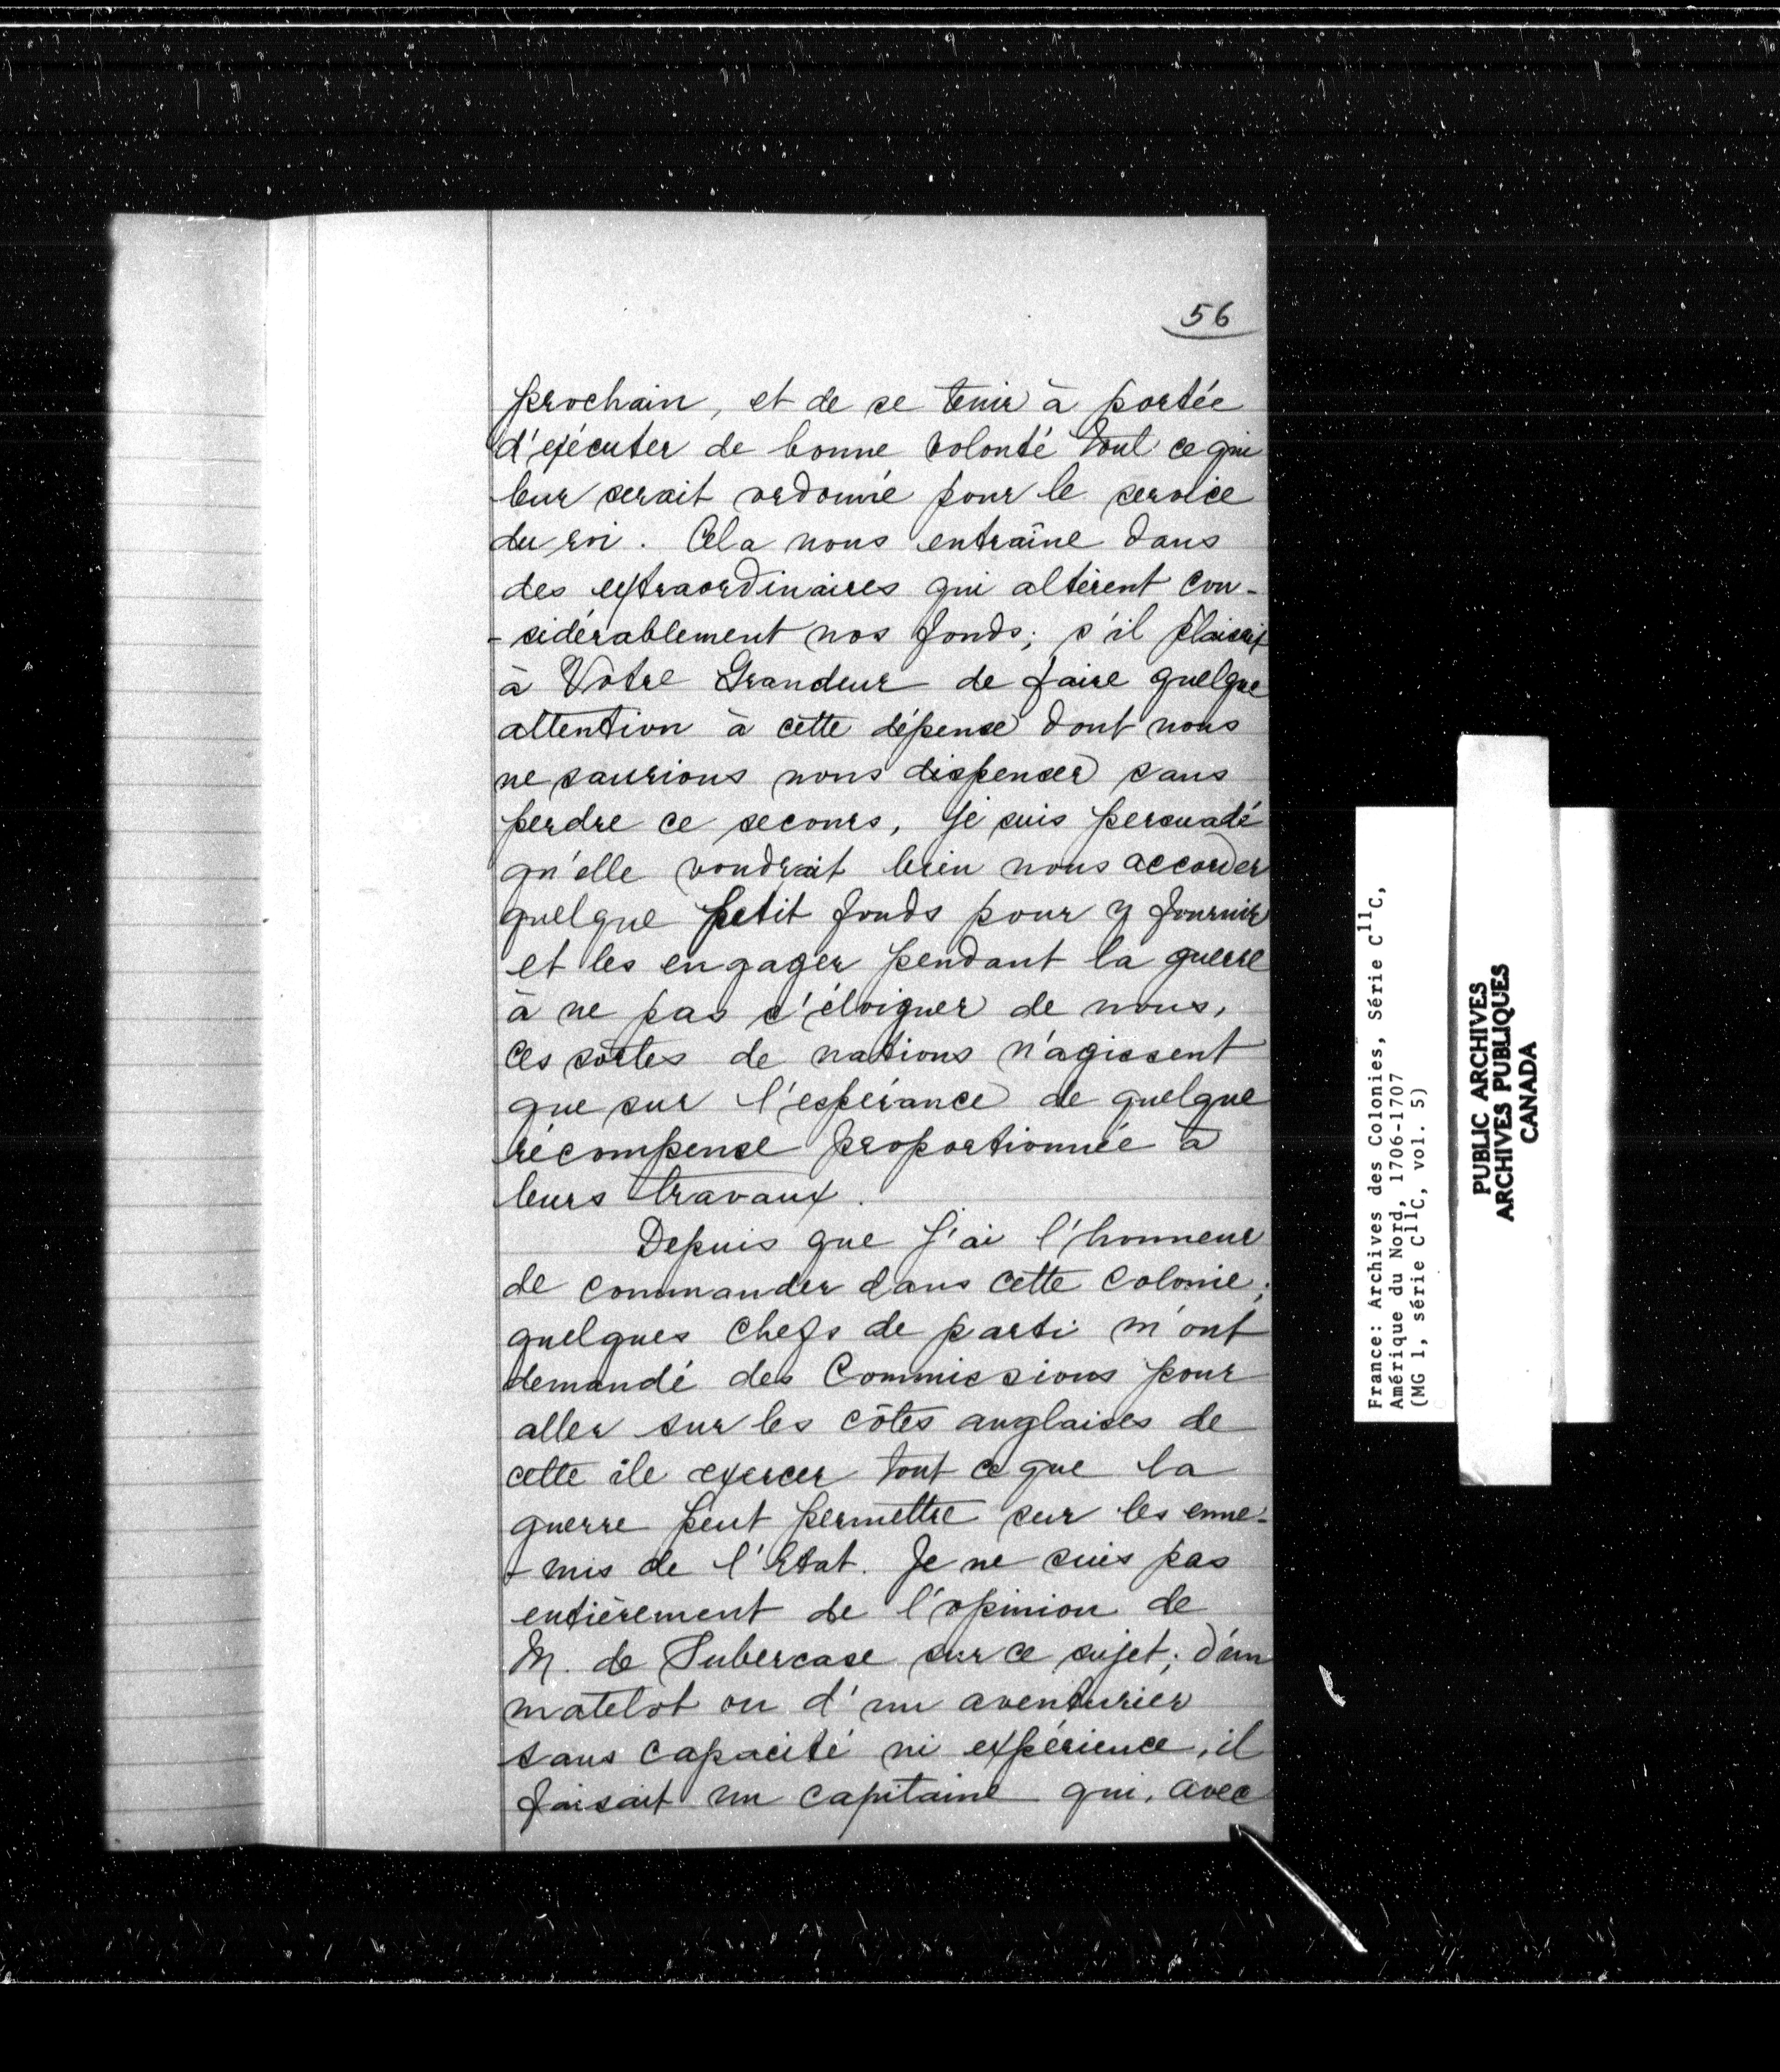 56
prochain, et de se tenir à portée
d'exécuter de bonne volonté tout ce qui
leur serait ordonné pour le service
du roi. Cela nous entraîne dans
des extraordinaires qui altèrent con-
-sidérablement nos fonds; s'il plaisait
à Votre Grandeur de faire quelque
attention à cette dépense dont nous
ne saurions nous dispenser sans
perdre ce secours, je suis persuadé
qu'elle voudrait bien nous accorder
quelque petit fonds pour y fournir
et les engager pendant la guerre
à ne pas s'éloigner de nous,
ces sortes de nations n'agissent
que sur l'espérance de quelque
récompense proportionnée à
leurs travaux.
Depuis que j'ai l'honneur
de commander dans cette colonie;
quelques chefs de parti m'ont
demandé des Commissions pour
aller sur les côtes anglaises de
cette île exercer tout ce que la
guerre peut permettre sur les enne-
-mis de l'Etat. Je ne suis pas
entièrement de l'opinion de
M. de Subercase sur ce sujet; d'un
matelot ou d'un aventurier
sans capacité ni expérience, il
faisait un capitaine qui, avec
France: Archives des Colonies, Série C11C,
Amérique du Nord, 1706-1707
(MG 1, série C11C, vol. 5)
PUBLIC ARCHIVES
ARCHIVES PUBLIQUES
CANADA